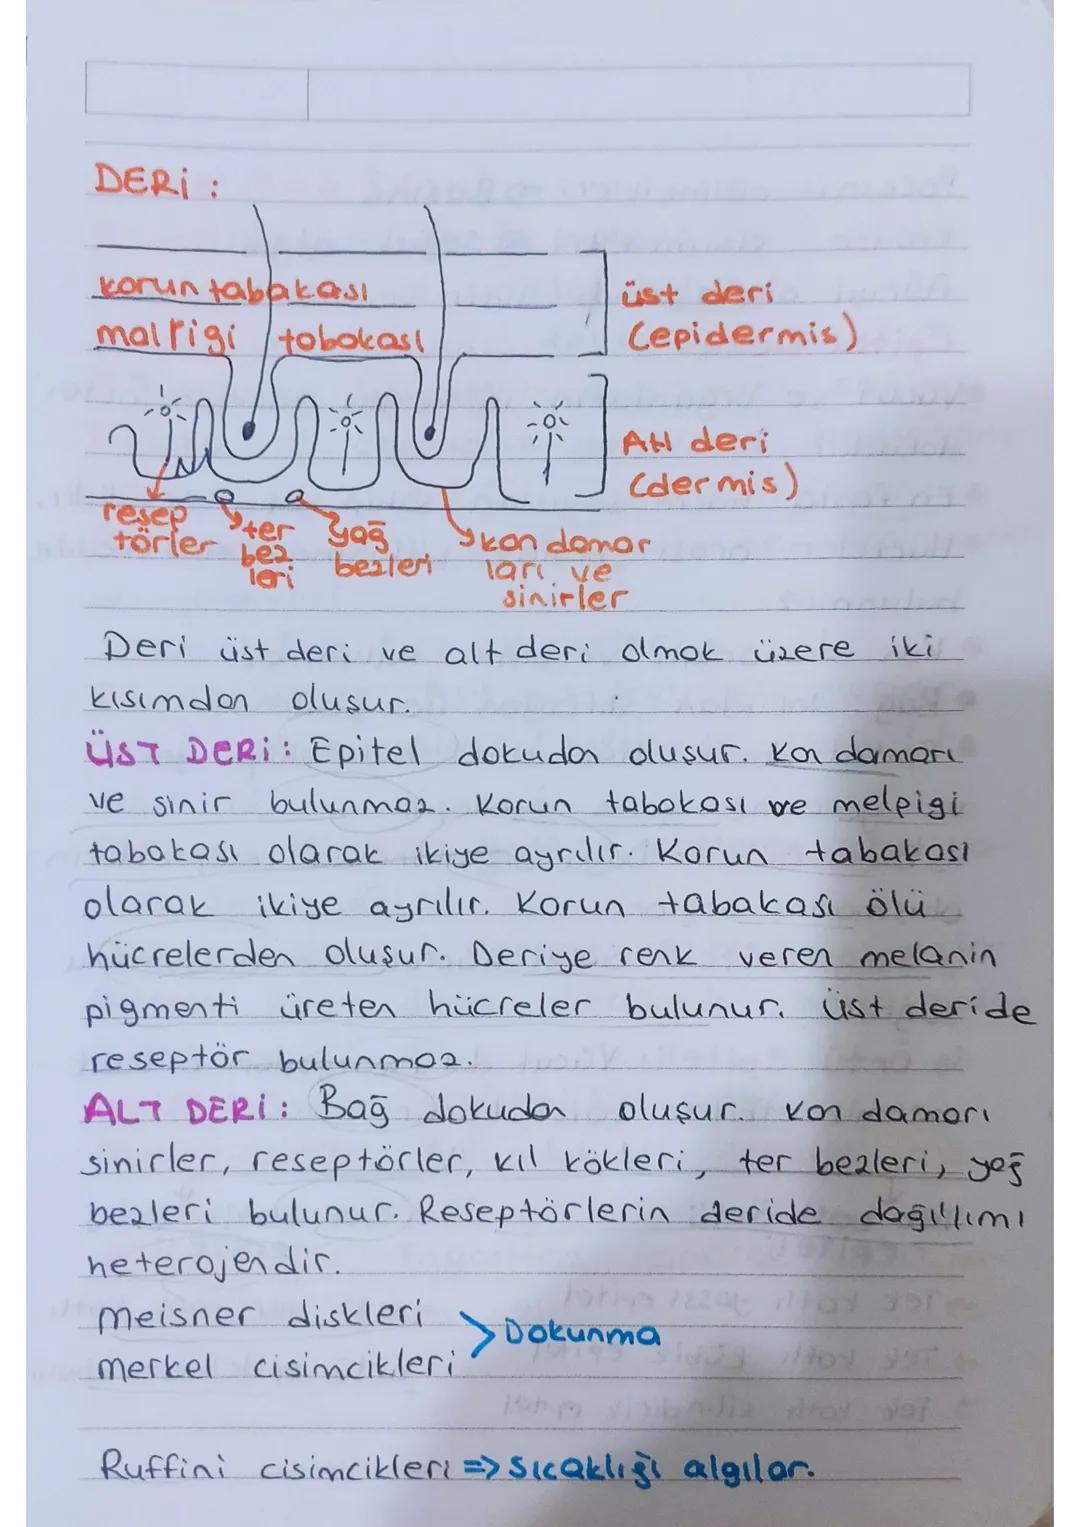 DERİ :
korun tabakası
malpigi tabakası
üst deri
(epidermis)
Alt deri
(dermis)
resep
törler
ter
bez
leri
yağ
bezleri
kan damar
ları ve
sinirler
Deri üst deri ve alt deri olmak üzere iki
kısımdan oluşur.
ÜST DERİ : Epitel dokudan oluşur. Kan damarı
ve sinir bulunmaz. Korun tabakası ve melpigi
tabakası olarak ikiye ayrılır. Korun tabakası
olarak ikiye ayrılır. Korun tabakası ölü
hücrelerden oluşur. Deriye renk veren melanin
pigmenti üreten hücreler bulunur. Üst deride
reseptör bulunmaz.
ALT DERİ : Bağ dokudan oluşur. Kan damarı
sinirler, reseptörler, kıl kökleri, ter bezleri, yağ
bezleri bulunur. Reseptörlerin deride dağıllımı
heterojendir.
meisner diskleri
merkel cisimcikleri
> Dokunma
Ruffini cisimcikleri => Sıcaklığı algılar.